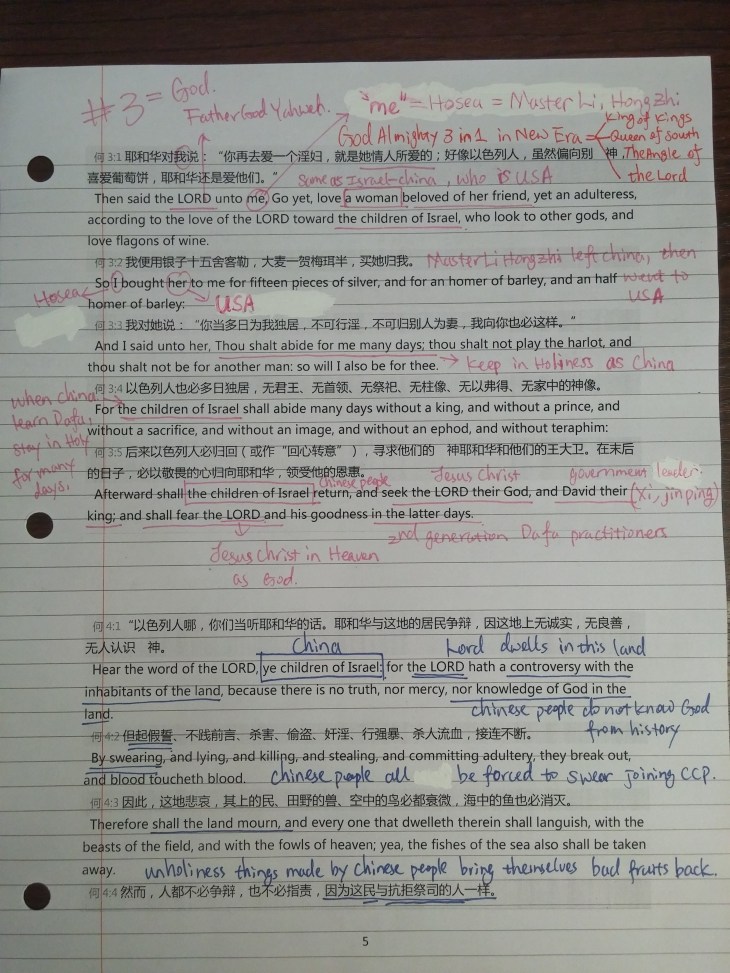 #3 = God.
Father God Yahweh.
"me" = Hosea = Master Li, Hongzhi
God Almighty 3 in 1 in New Era =
King of Kings
Queen of South
The Angle of
the Lord
何 3:1 耶和华对我说：“你再去爱一个淫妇，就是她情人所爱的；好像以色列人，虽然偏向别 神，
喜爱葡萄饼，耶和华还是爱他们。”
same as Israel-china, who is USA
Then said the LORD unto me, Go yet, love a woman beloved of her friend, yet an adulteress,
according to the love of the LORD toward the children of Israel, who look to other gods, and
love flagons of wine.
何 3:2 我便用银子十五舍客勒，大麦一贺梅珥半，买她归我。
Master Li Hongzhi left china, then
went to
USA
So I bought her to me for fifteen pieces of silver, and for an homer of barley, and an half
homer of barley:
Hosea
USA
何 3:3 我对她说：“你当多日为我独居，不可行淫，不可归别人为妻，我向你也必这样。”
And I said unto her, Thou shalt abide for me many days; thou shalt not play the harlot, and
thou shalt not be for another man: so will I also be for thee.
keep in Holiness as China
何 3:4 以色列人也必多日独居，无君王、无首领、无祭祀、无柱像、无以弗得、无家中的神像。
when china
learn Dafa,
stay in Holy
for many
days.
For the children of Israel shall abide many days without a king, and without a prince, and
without a sacrifice, and without an image, and without an ephod, and without teraphim:
何 3:5 后来以色列人必归回（或作“回心转意”），寻求他们的 神耶和华和他们的王大卫。在末后
的日子，必以敬畏的心归向耶和华，领受他的恩惠。
chinese people
Jesus Christ
government leader.
(Xi, jinping)
Afterward shall the children of Israel return, and seek the LORD their God, and David their
king; and shall fear the LORD and his goodness in the latter days.
2nd generation Dafa practitioners
Jesus Christ in Heaven
as God.
何 4:1 “以色列人哪，你们当听耶和华的话。耶和华与这地的居民争辩，因这地上无诚实，无良善，
无人认识 神。
China
Lord dwells in this land
Hear the word of the LORD, ye children of Israel: for the LORD hath a controversy with the
inhabitants of the land, because there is no truth, nor mercy, nor knowledge of God in the
land.
chinese people do not know God
from history
何 4:2 但起假誓、不践前言、杀害、偷盗、奸淫、行强暴、杀人流血，接连不断。
By swearing, and lying, and killing, and stealing, and committing adultery, they break out,
and blood toucheth blood.
chinese people all be forced to swear joining CCP.
何 4:3 因此，这地悲哀，其上的民、田野的兽、空中的鸟必都衰微，海中的鱼也必消灭。
Therefore shall the land mourn, and every one that dwelleth therein shall languish, with the
beasts of the field, and with the fowls of heaven; yea, the fishes of the sea also shall be taken
away.
unholiness things made by chinese people bring themselves bad fruits back.
何 4:4 然而，人都不必争辩，也不必指责，因为这民与抗拒祭司的人一样。
5